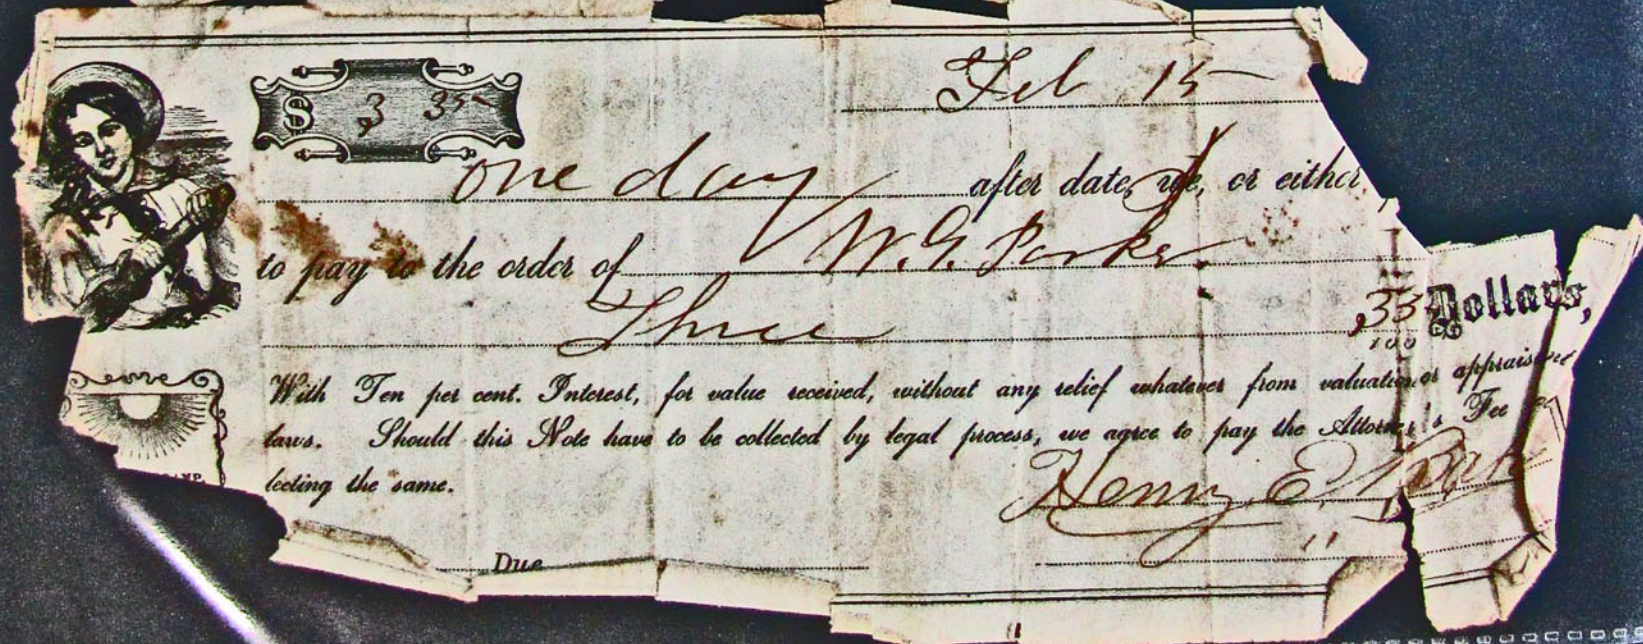 Feb 15
$ 3 35
one day after date, we, or either
to pay to the order of W. G. Parker.
Three 33/100 Dollars,
With Ten per cent. Interest, for value received, without any relief whatever from valuation or appraisement
laws. Should this Note have to be collected by legal process, we agree to pay the Attorney's Fee
lecting the same.
Henry E.
Due